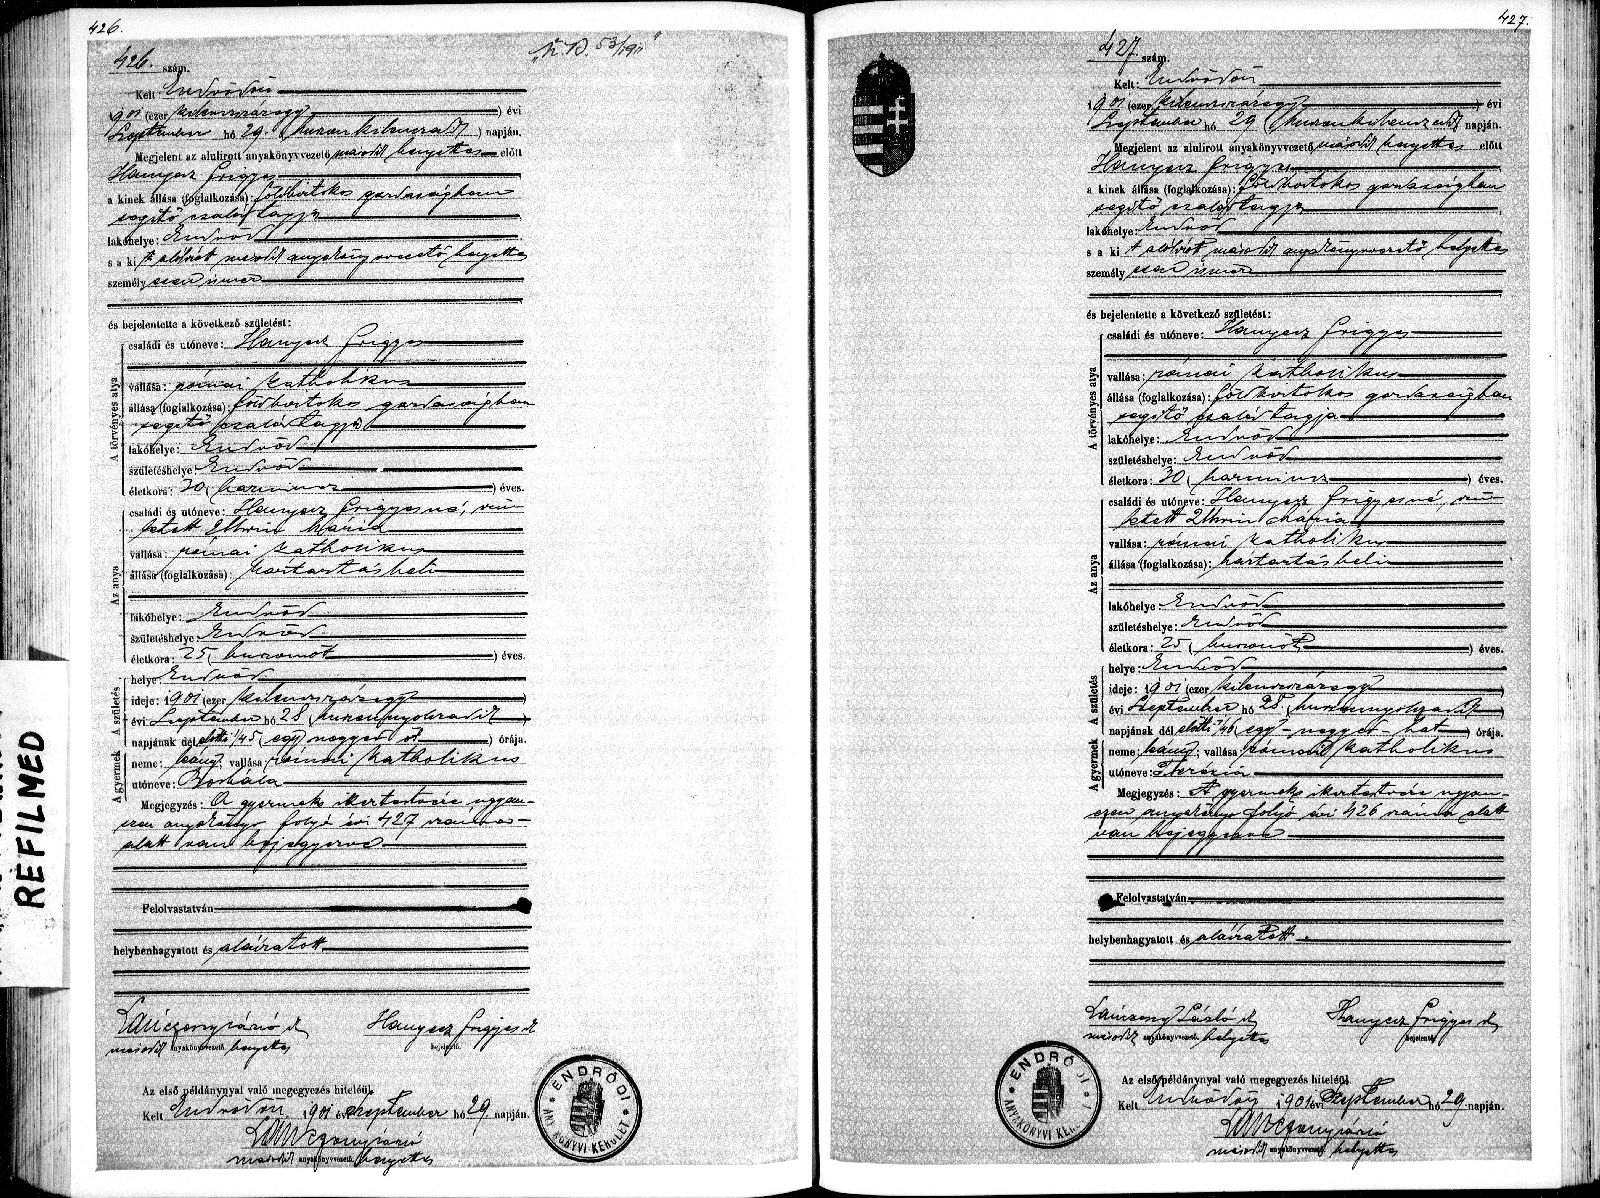 426.
426. szám.
"N. B. 53/1911"
Kelt: Endrődön
1901 (ezer kilencszázegy) évi
Szeptember hó 29. (huszonkilenczedik) napján.
Megjelent az alulirott anyakönyvvezető második helyettes előtt
Hanyecz Frigyes
a kinek állása (foglalkozása): földbirtokos gazdaságban
segitő családtagja
lakóhelye: Endrőd
s a ki t alólirt második anyakönyvvezető helyettes
személyesen ismer
és bejelentette a következő születést:
A törvényes atya
családi és utóneve: Hanyecz Frigyes
vallása: római katholikus
állása (foglalkozása): földbirtokos gazdaságban
segitő családtagja
lakóhelye: Endrőd
születéshelye: Endrőd
életkora: 30 (harmincz) éves.
Az anya
családi és utóneve: Hanyecz Frigyesné, szü-
letett Mária
vallása: római katholikus
állása (foglalkozása): háztartásbeli
lakóhelye: Endrőd
születéshelye: Endrőd
életkora: 25 (huszonöt) éves.
A születés
helye: Endrőd
ideje: 1901 (ezer kilencszázegy)
évi Szeptember hó 28 (huszonnyolczadik)
napjának dél előtti 1/4 5 (egy negyed öt) órája.
A gyermek
neme: leány; vallása: római katholikus
utóneve: Borbála
Megjegyzés: A gyermek ikertestvére ugyan-
ezen anyakönyv folyó évi 427 szám
alatt van bejegyezve.
Felolvastatván
helybenhagyatott és aláiratott
Hanyecz Frigyes
második anyakönyvvezető helyettes
bejelentő.
Az első példánynyal való megegyezés hiteléül.
Kelt Endrődön 1901 évi Szeptember hó 29 napján.
második anyakönyvvezető helyettes
ENDRŐDI ANYAKÖNYVI KERÜLET
REFILMED
427.
427 szám.
Kelt: Endrődön
1901 (ezer kilencszázegy) évi
Szeptember hó 29 (huszonkilenczedik) napján.
Megjelent az alulirott anyakönyvvezető második helyettes előtt
Hanyecz Frigyes
a kinek állása (foglalkozása): földbirtokos gazdaságban
segitő családtagja
lakóhelye: Endrőd
s a ki t alólirt második anyakönyvvezető helyettes
személyesen ismer
és bejelentette a következő születést:
A törvényes atya
családi és utóneve: Hanyecz Frigyes
vallása: római katholikus
állása (foglalkozása): földbirtokos gazdaságban
segitő családtagja
lakóhelye: Endrőd
születéshelye: Endrőd
életkora: 30 (harmincz) éves.
Az anya
családi és utóneve: Hanyecz Frigyesné, szü-
letett Mária
vallása: római katholikus
állása (foglalkozása): háztartásbeli
lakóhelye: Endrőd
születéshelye: Endrőd
életkora: 25 (huszonöt) éves.
A születés
helye: Endrőd
ideje: 1901 (ezer kilencszázegy)
évi Szeptember hó 28 (huszonnyolczadik)
napjának dél előtti 1/4 6 (egy negyed hat) órája.
A gyermek
neme: leány; vallása: római katholikus
utóneve: Therézia
Megjegyzés: A gyermek ikertestvére ugyan-
ezen anyakönyv folyó évi 426 szám alatt
van bejegyezve
Felolvastatván
helybenhagyatott és aláiratott.
László
Hanyecz Frigyes
második anyakönyvvezető helyettes
bejelentő.
Az első példánynyal való megegyezés hiteléül.
Kelt Endrődön 1901 évi Szeptember hó 29 napján.
második anyakönyvvezető helyettes
ENDRŐDI ANYAKÖNYVI KE